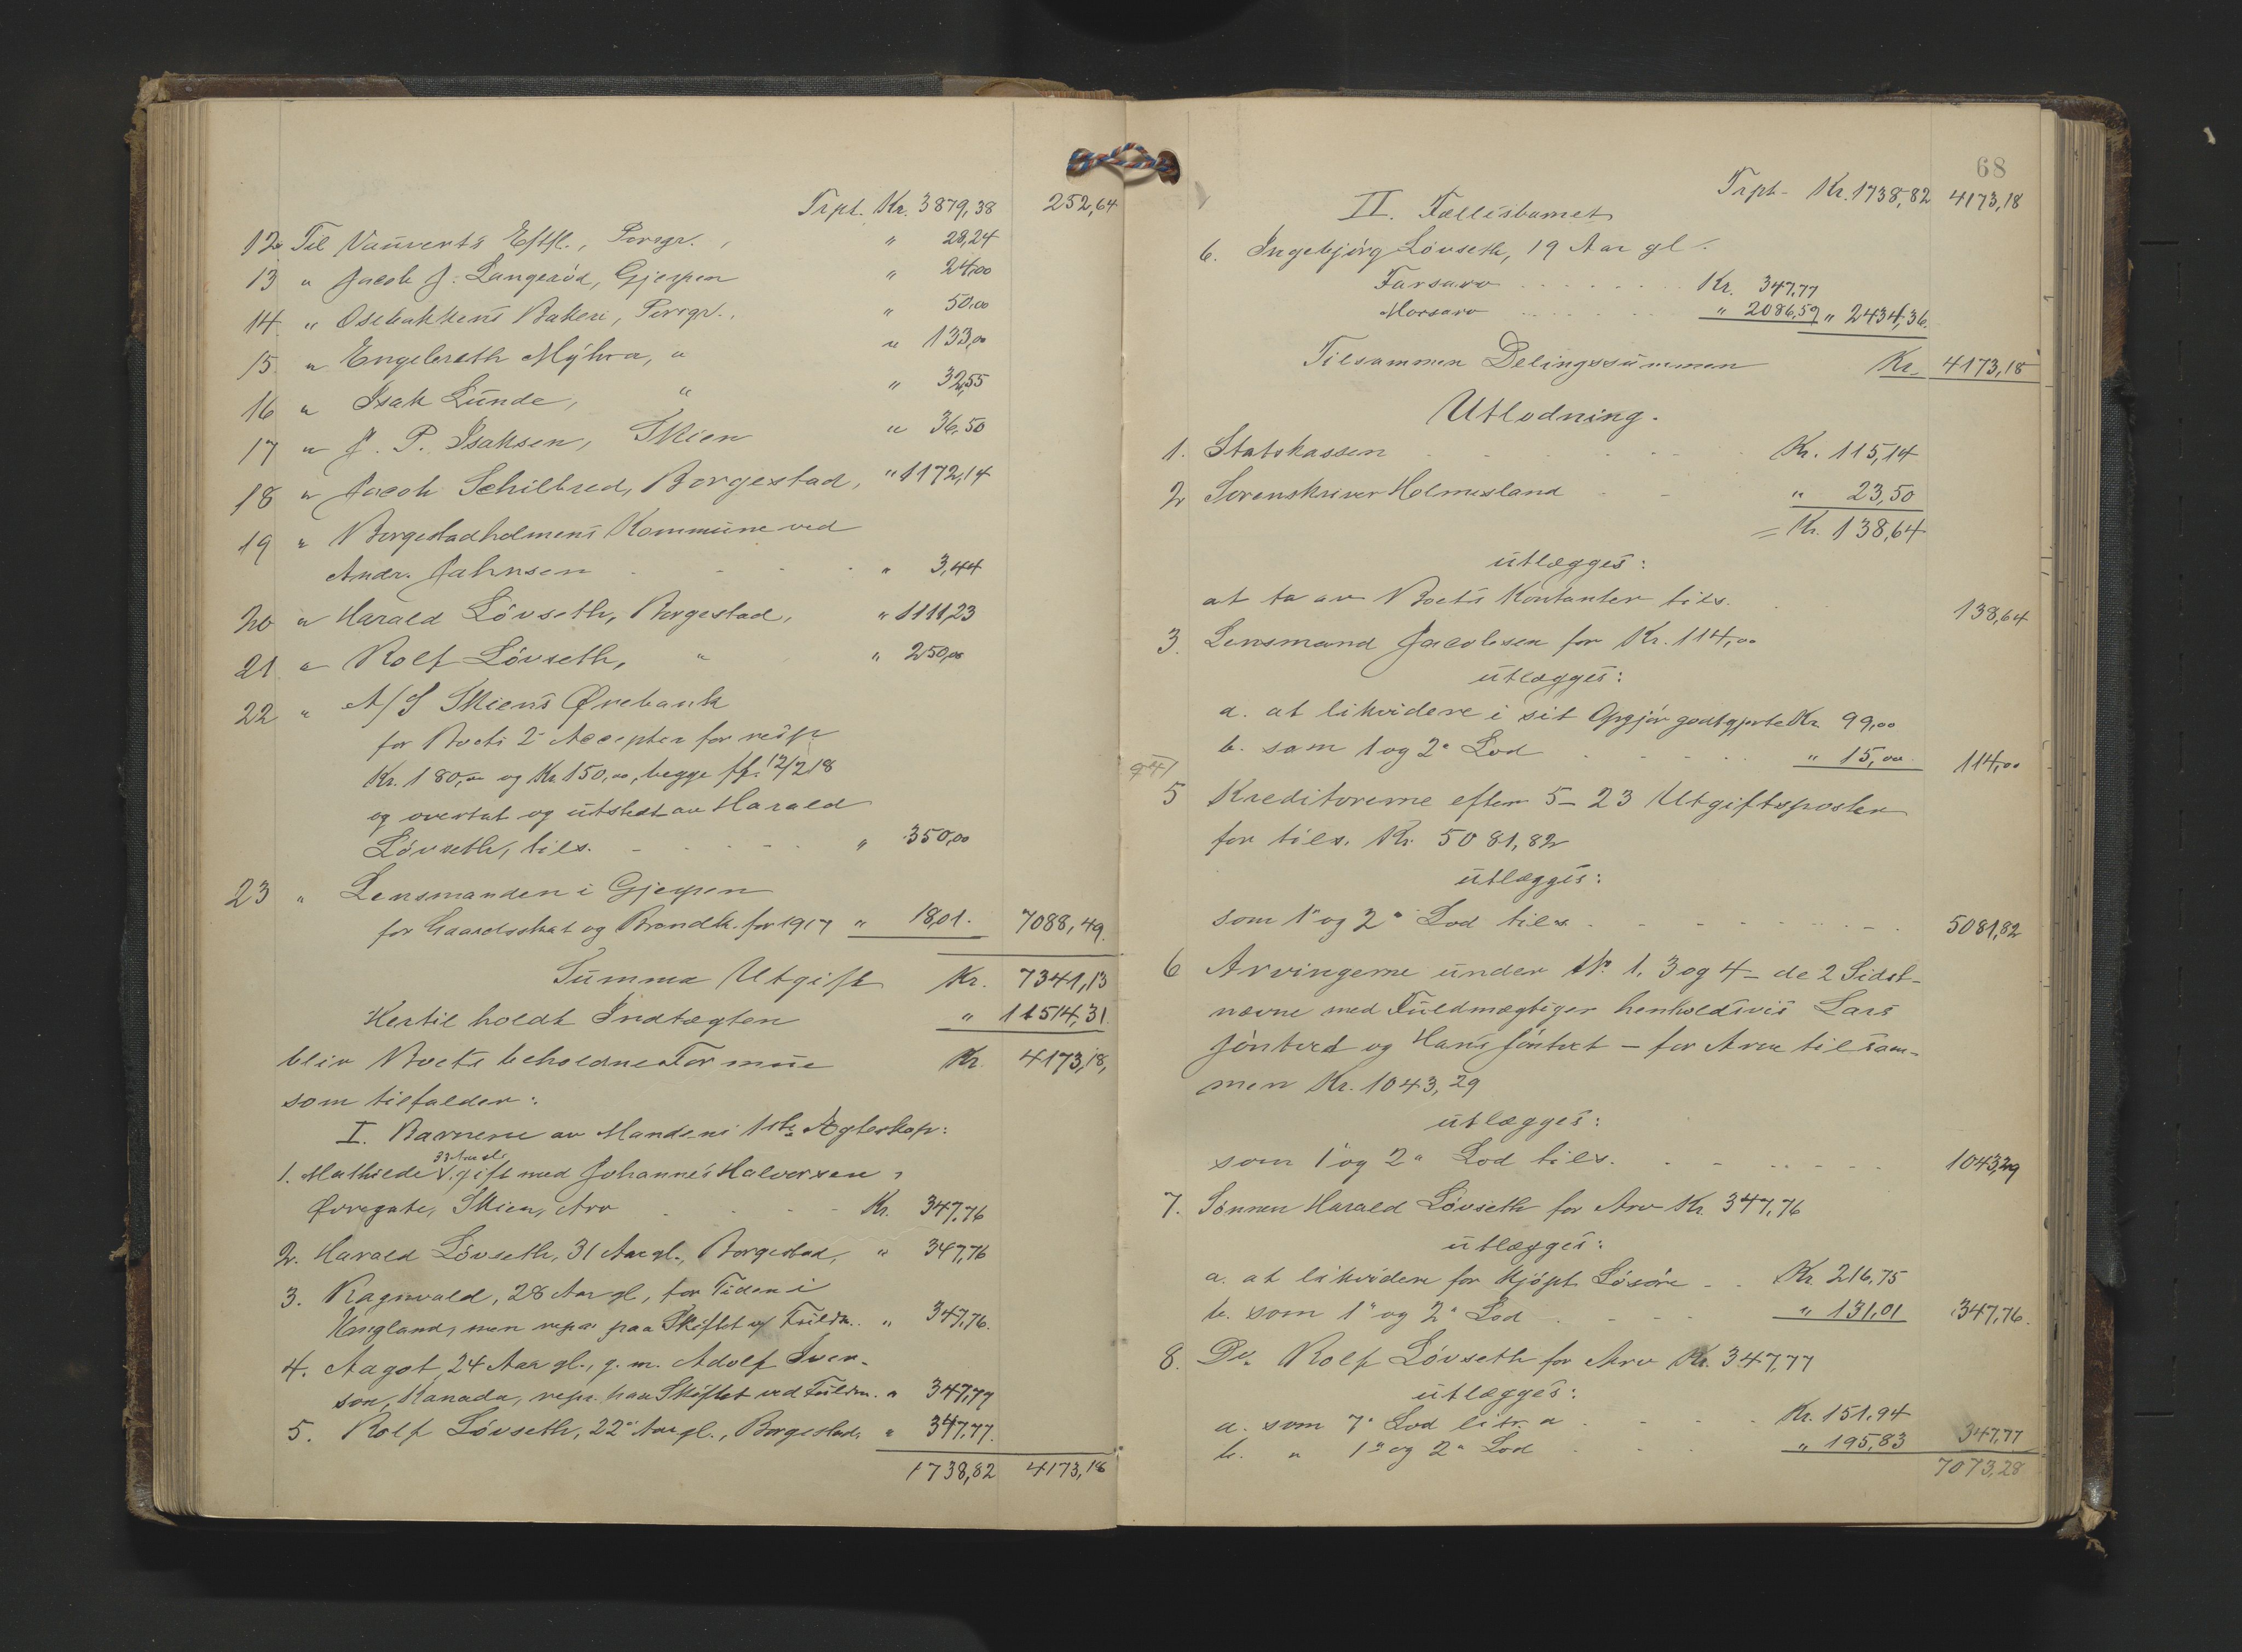 Trpt. Kr. 3879,38 252,64
12 Til Vauverts Eftfl., Porsgr., " 28,24
13 " Jacob J. Langerød, Gjerpen " 24,00
14 " Osebakkens Bakeri, Porsgr., " 50,00
15 " Engebreth Myhra, " " 133,00
16 " Isak Lunde, " " 32,55
17 " J. P. Isaksen, Skien " 36,50
18 " Jacob Schilbred, Borgestad, " 1172,14
19 " Borgestadholmens Kommune ved
Andr. Jahnsen " 3,44
20 " Harald Løvseth, Borgestad, " 1111,23
21 " Rolf Løvseth, " " 250,00
22 " A/S Skiens Ørebank
for Boets 2 Accepter for resp
Kr. 180,00 og Kr. 150,00, begge ff. 12/2 18
og overtat og utstedt av Harald
Løvseth, tils. " 350,00
23 " Lensmanden i Gjerpen
for Gaardsskat og Brandk. for 1917 " 18,01. 7088,49.
Summa Utgift Kr. 7341,13
Hertil holdt Indtægten " 11514,31
blir Boets beholdne Formue Kr. 4173,18,
som tilfalder:
I. Barnene av Mandens 1ste Ægteskap:
33 Aar gl.
1. Mathilde V. gift med Johannes Halvorsen,
Øvregate, Skien, Arv Kr. 347,76
2. Harald Løvseth, 31 Aar gl., Borgestad, " 347,76
3. Ragnvald, 28 Aar gl, for Tiden i
England, men repr. paa Skiftet v/ Fuldm. " 347,76.
4. Aagot, 24 Aar gl., g. m. Adolf Iver-
son, Kanada, repr. paa Skiftet ved Fuldm. " 347,77
5. Rolf Løvseth, 22 Aar gl., Borgestad, " 347,77.
1738,82 4173,18
68
Trpt- Kr. 1738,82 4173,18
II. Fællesbarnet
6. Ingebjørg Løvseth, 19 Aar gl.
Farsarv Kr. 347,77
Morsarv " 2086,59 " 2434,36.
Tilsammen Delingssummen Kr. 4173,18
Utlodning.
1. Statskassen Kr. 115,14
2 Sorenskriver Holmesland " 23,50
= Kr. 138,64
utlægges:
at ta av Boets Kontanter tils. 138,64
3. Lensmand Jacobsen for Kr. 114,00
utlægges:
a. at likvidere i sit Opgjør godtgjorte Kr. 99,00
b. som 1 og 2" Lod " 15,00. 114,00
5 Kreditorerne efter 5-23 Utgiftsposter
for tils. Kr. 5081,82
utlægges:
som 1" og 2" Lod tils. 5081,82
6 Arvingerne under No. 1, 3 og 4 - de 2 Sidst-
nævne med Fuldmægtiger henholdsvis Lars
Jøntvet og Hans Jøntvet - for Arv tilsam-
men Kr. 1043,29
utlægges:
som 1" og 2" Lod tils. 1043,29
7. Sønnen Harald Løvseth for Arv Kr. 347,76
utlægges:
a. at likvidere for kjøpt Løsøre - Kr. 216,75
b. som 1" og 2" Lod " 131,01 347,76.
8. Do. Rolf Løvseth for Arv Kr. 347,77
utlægges:
a. som 7" Lod litr. a Kr. 151,94
b. " 1" og 2" Lod " 195,83 347,77
7073,28